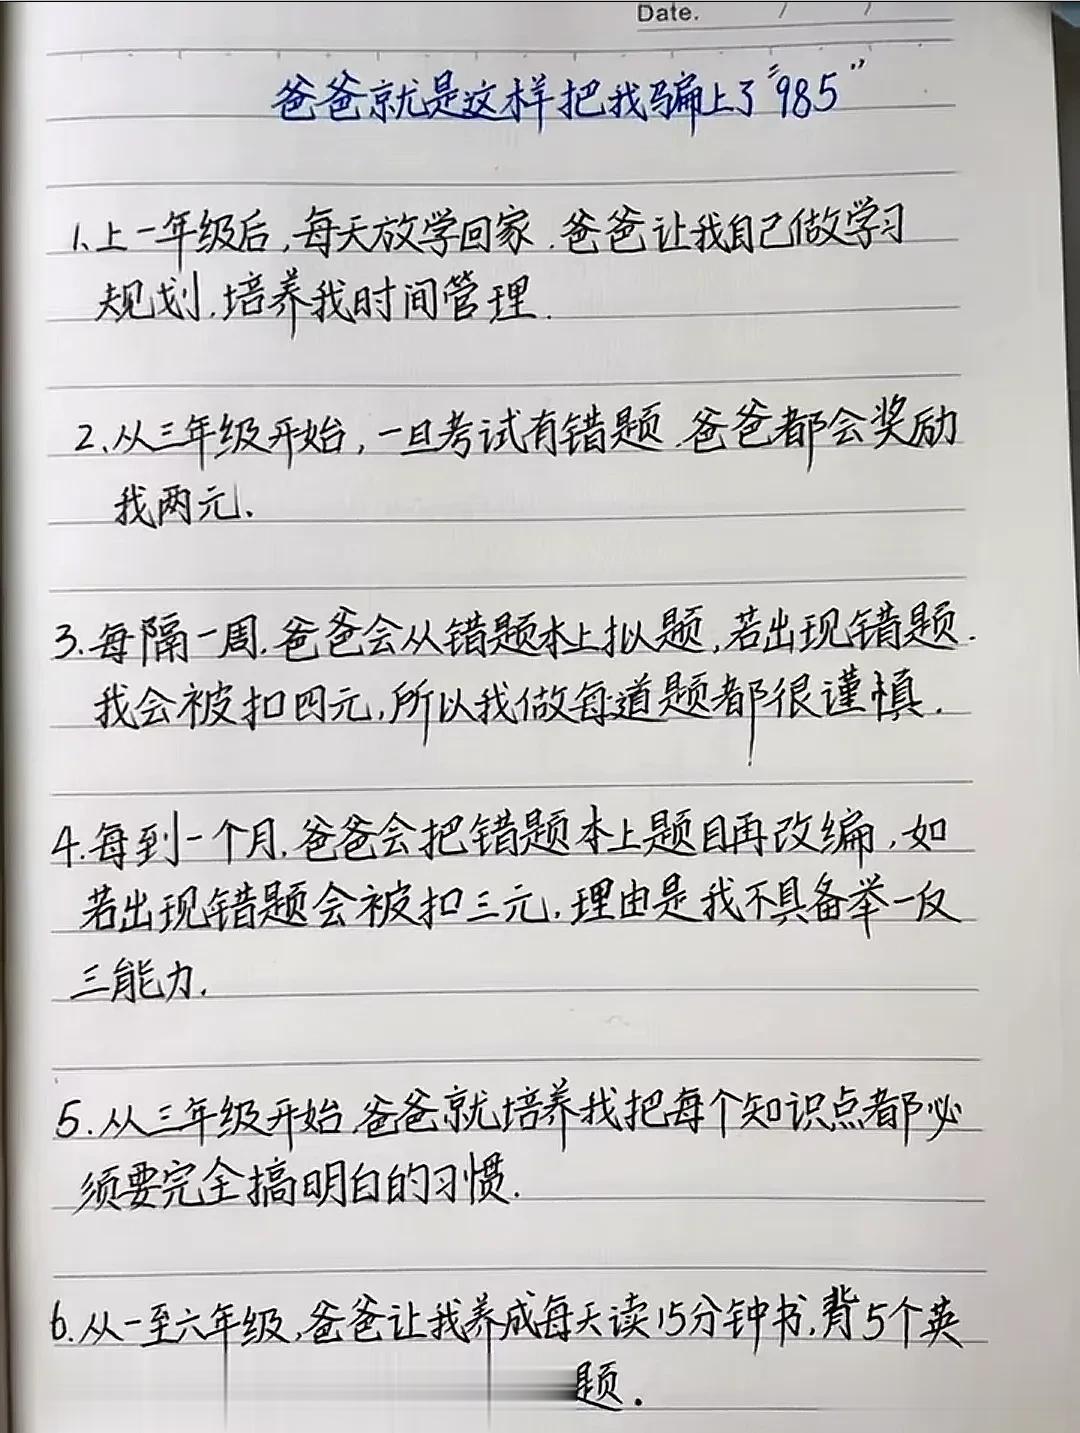 Date. / /
爸爸就是这样把我骗上了“985”
1.上一年级后,每天放学回家.爸爸让我自己做学习
规划.培养我时间管理.
2.从三年级开始,一旦考试有错题.爸爸都会奖励
我两元.
3.每隔一周.爸爸会从错题本上拟题,若出现错题.
我会被扣四元,所以我做每道题都很谨慎.
4.每到一个月.爸爸会把错题本上题目再改编,如
若出现错题会被扣三元.理由是我不具备举一反
三能力.
5.从三年级开始.爸爸就培养我把每个知识点都必
须要完全搞明白的习惯.
6.从一至六年级,爸爸让我养成每天读15分钟书.背5个英
题.